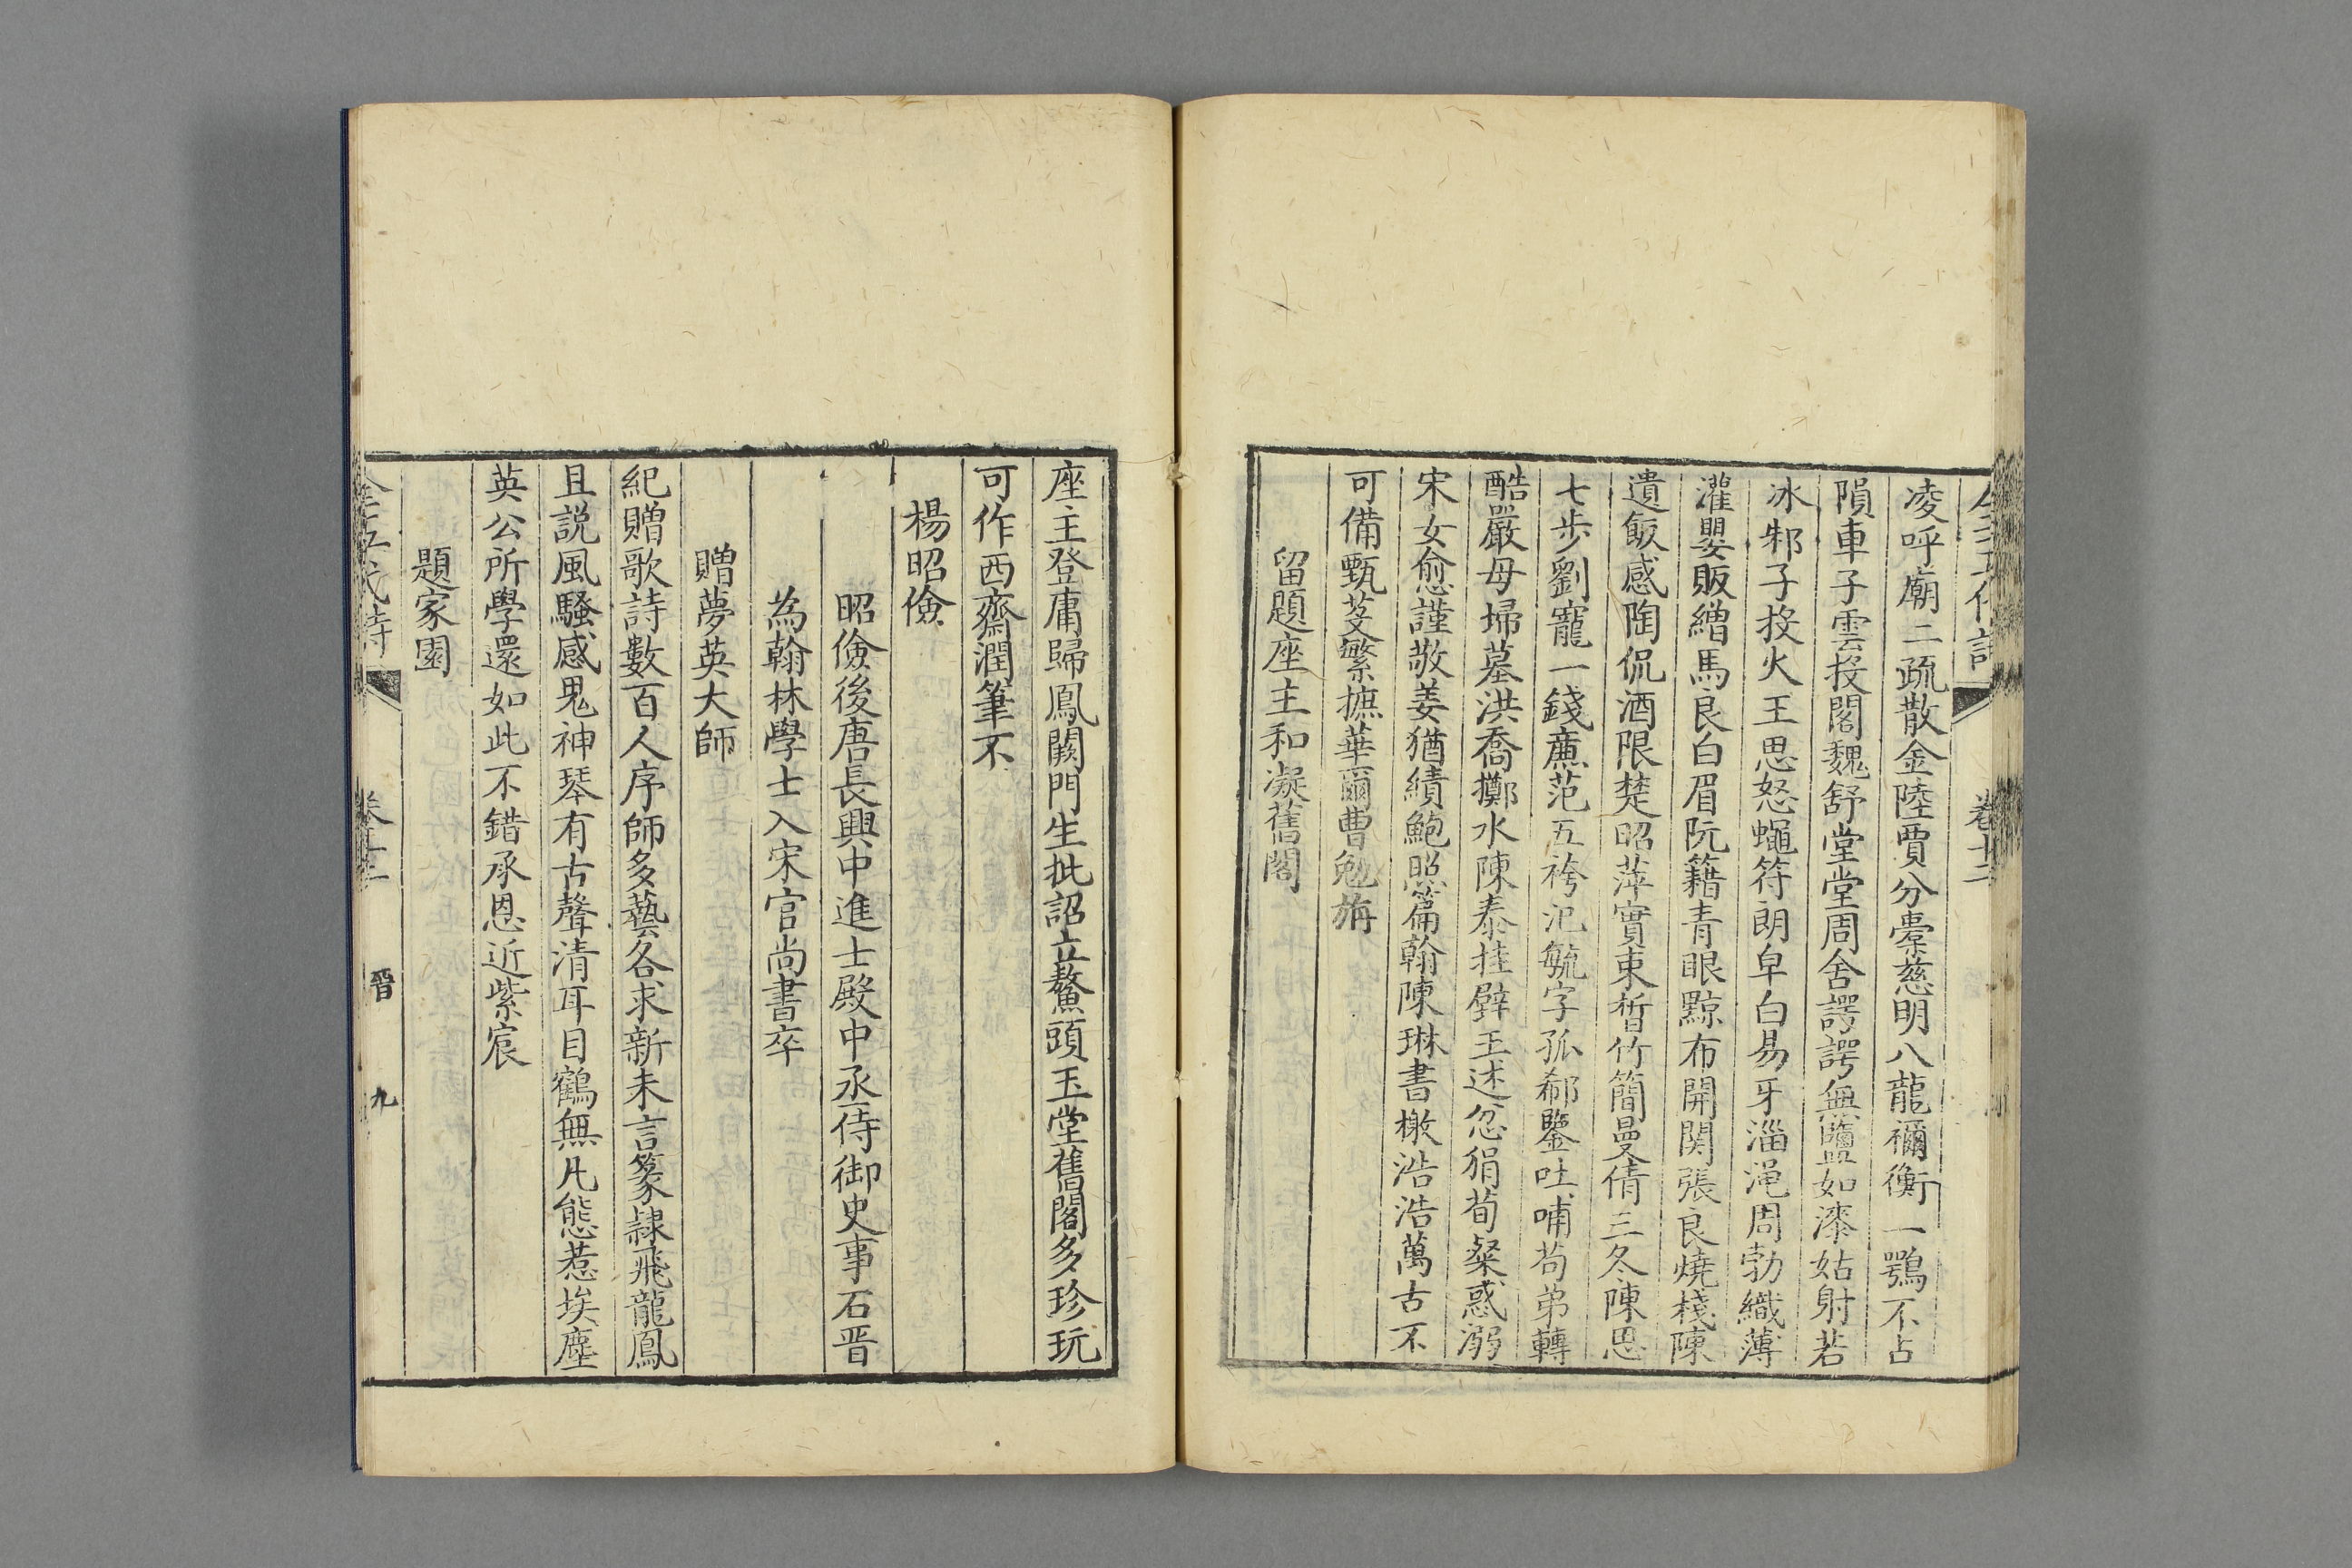 凌呼廟二疏散金陸賈分橐慈明八龍禰衡一鶚不占
隕車子雲投閣魏舒堂堂周舍諤諤無鹽如漆姑射若
冰邾子投火王思怒蠅苻朗皁白易牙淄渑周勃織薄
灌嬰販繒馬良白眉阮籍青眼黥布開関張良燒棧陳
遺飯感陶侃酒限楚昭萍實束晳竹簡曼倩三冬陳思
七步劉寵一錢亷范五袴氾毓字孤郗鑒吐哺苟弟轉
酷嚴母埽墓洪喬擲水陳泰挂壁王述忿狷荀粲惑溺
宋女愈謹敬姜猶績鮑照篇翰陳琳書檄浩浩萬古不
可備甄芟繁摭華爾曹勉旃
留題座主和凝舊閣
座主登庸歸鳳闕門生批詔立鰲頭玉堂舊閣多珍玩
可作西齋潤筆不
楊昭儉
昭儉後唐長興中進士殿中丞侍御史事石晋
為翰林學士入宋官尚書卒
贈夢英大師
紀贈歌詩數百人序師多藝各求新未言篆隸飛龍鳳
且説風騷感鬼神琴有古聲清耳目鶴無凡態惹埃塵
英公所學還如此不錯承恩近紫宸
題家園
全五代詩 卷十二 晋 九